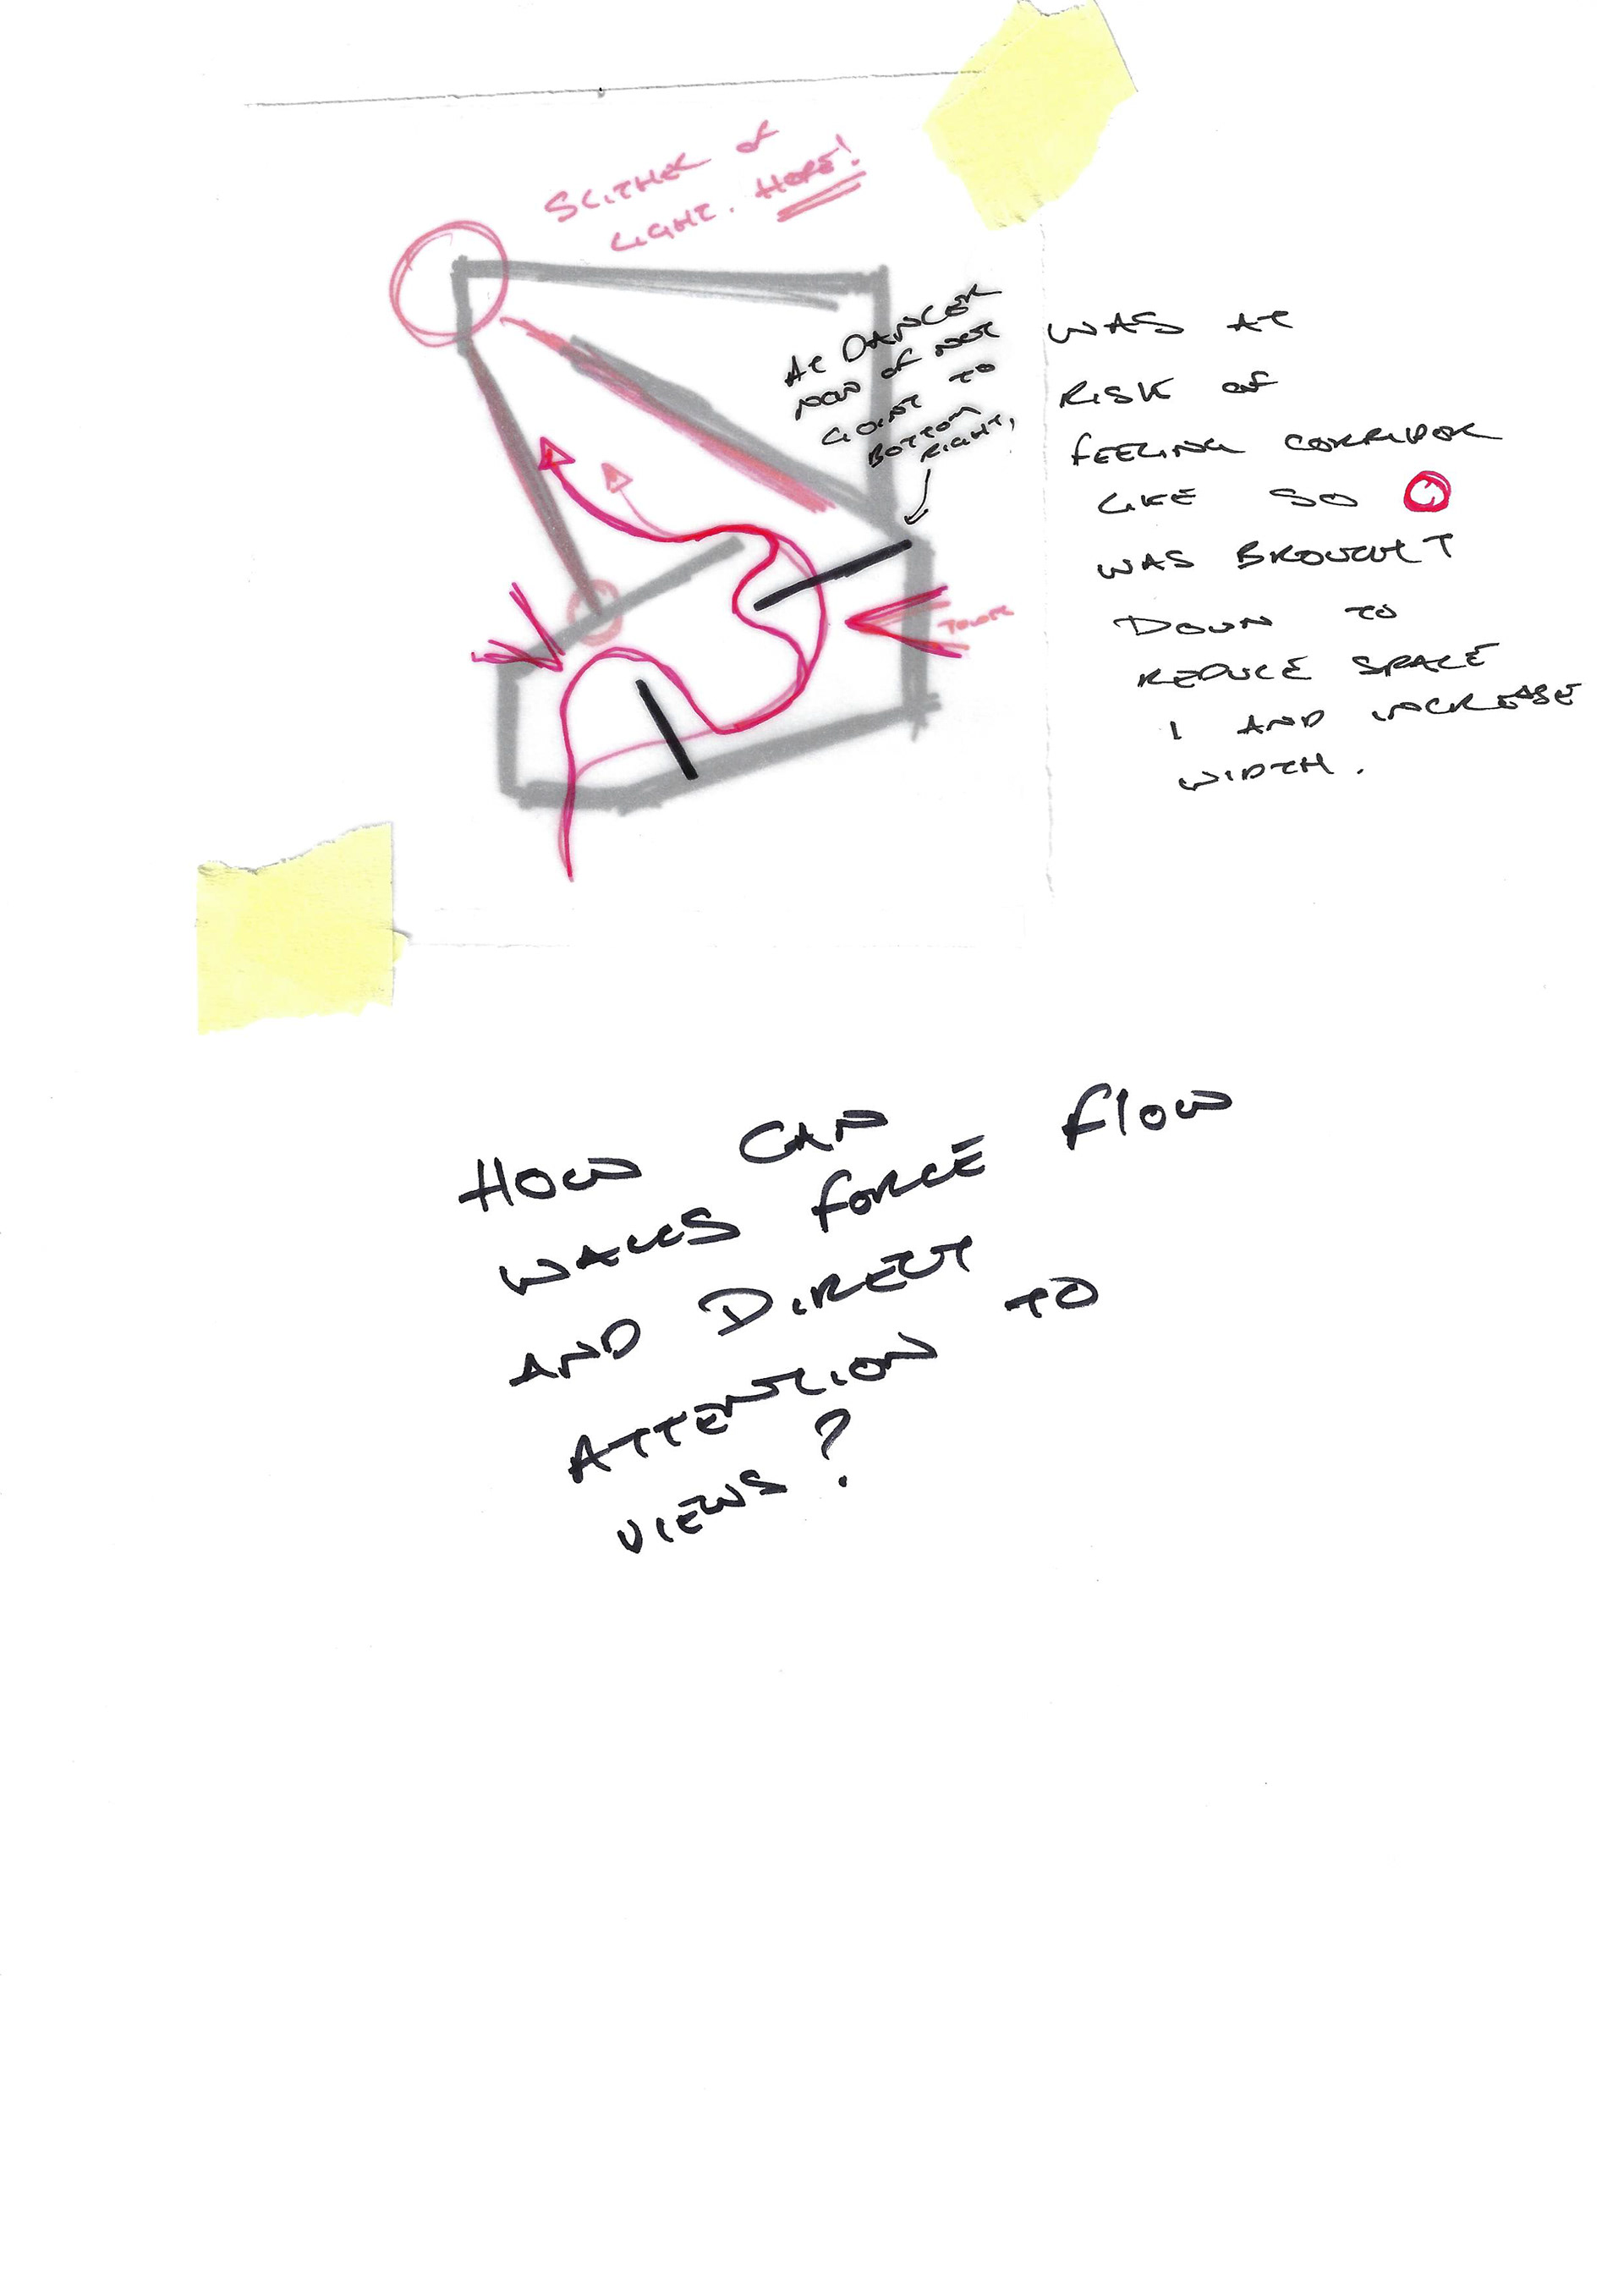 SLITHER of
LIGHT. HOPE!
AT DANGER
NOW of NOT
GOING TO
BOTTOM
RIGHT,
WAS AT
RISK of
FEELING CORRIDOR
LIKE SO
WAS BROUGHT
DOWN TO
REDUCE SPACE
1 AND INCREASE
WIDTH.
HOW CAN
WALLS FORCE FLOW
AND DIRECT
ATTENTION TO
VIEWS?